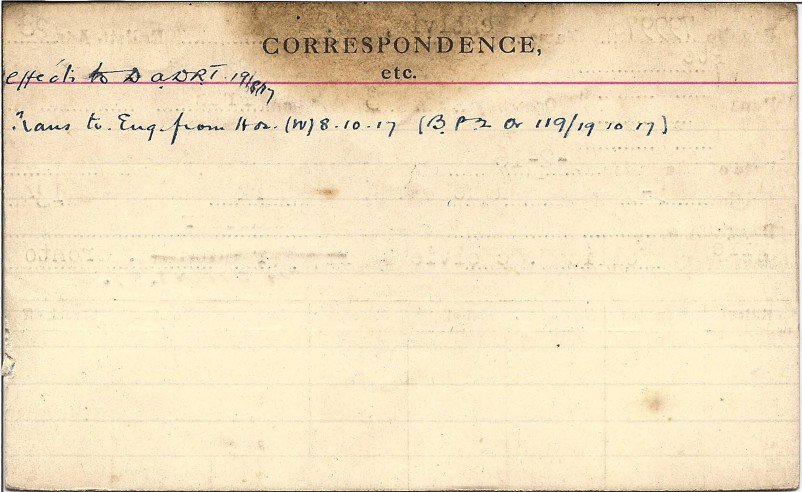 CORRESPONDENCE,
etc.
effects to D.A.D.R.T. 19/8/17
Trans to. Eng. from Hos. (W) 8.10.17 (B.P 2 Or 119/19 10 17)